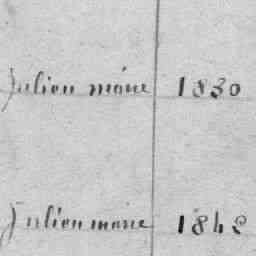 Julien mône 1830
Julien mone 1842